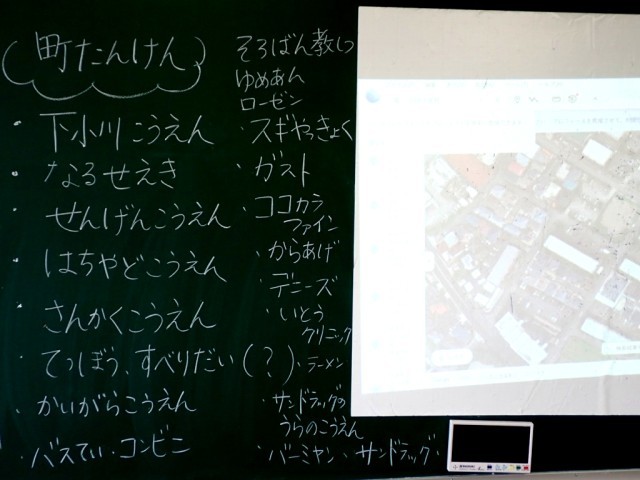 町たんけん
・下小川こうえん
・なるせえき
・せんげんこうえん
・はちやどこうえん
・さんかくこうえん
・てつぼう、すべりだい(?)
・かいがらこうえん
・バスてい・コンビニ
そろばん教しつ
ゆめあん
ローゼン
・スギやっきょく
・ガスト
・ココカラ
ファイン
・からあげ
・デニーズ
・いとう
クリニック
・ラーメン
・サンドラッグの
うらのこうえん
・バーミヤン、サンドラッグ・